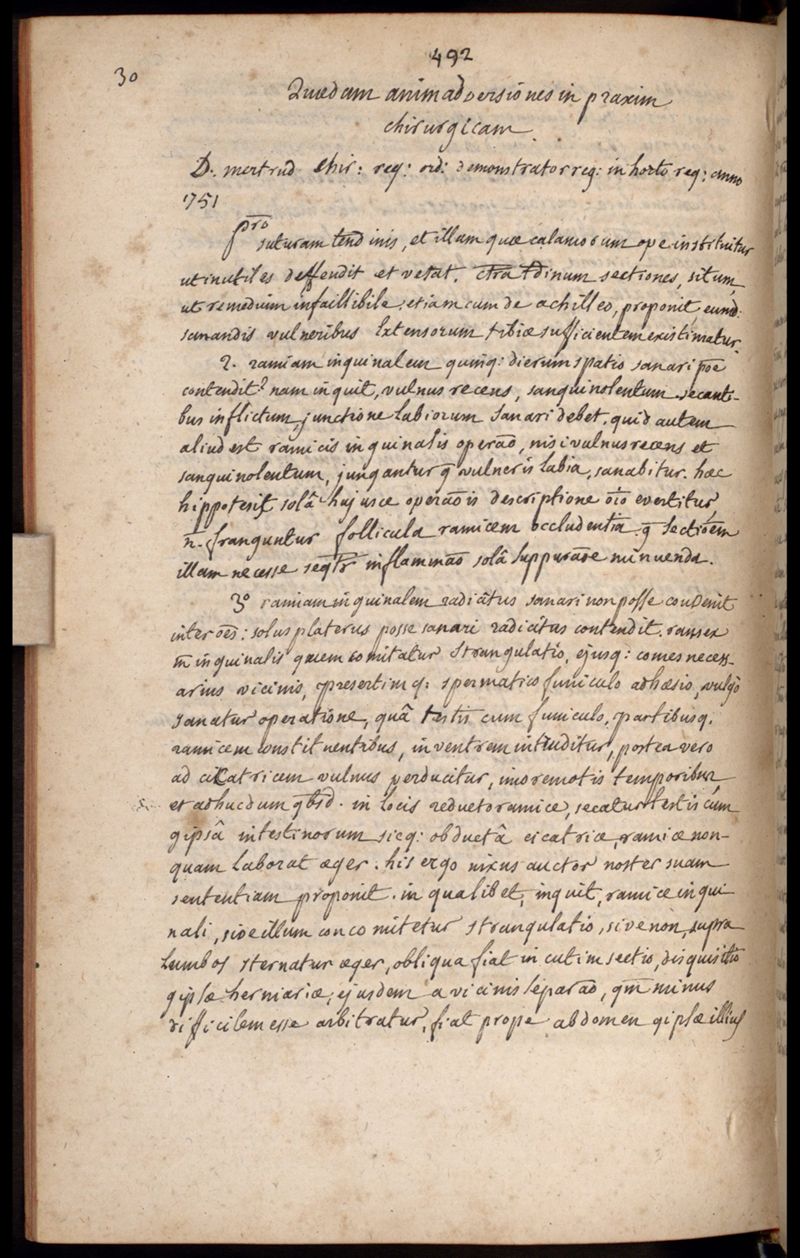 492
30
Quædam animadversiones in praxim
chirurgicam
D. mertrud Chir: reg: ord: demonstrator reg: in horto reg: anno
1751
pro
suturam tendinis, et illam quæ calamorum ope instituitur
ut inutiles deffendit et vetat. sectiones, situm
ut remedium infaillibile, etiam cum de achilleo, proponit eund:
sanandis vulneribus Extensorum tibiæ sufficientem existimatur
2. ramicem inquinalem quinq: dierum spatio sanari poe
contendit? nam inquit, vulnus recens, sanguinolentum secanti-
bus inflictum, junctione labiorum Sanari debet. quid autem
aliud est ramicis inquinalis operão, nisi vulnus recens et
sanguinolentum, jungantur q vulneris labia, sanabitur. hæc
hippotesis solâ hujusce operãois descriptione oïo evertitur
n. franguntur follicula ramicem occludentia q Sectionem
illam necesse seqtr inflammão solâ Suppurãoe minuenda.
3º ramicem inquinalem radicitus sanari non posse convenit
inter oes: solus platerus posse sanari radicitus contendit. ramex
m inquinalis quem comitatur Strangulatio, ejusq: comes necess-
arius vicinis, presertimq: spermatico funiculo adhæsio, vulgo
sanatur operatione, quâ testis cum funiculo, partibusq.
ramicem constituentibus, in ventrem intruditur, postea vero
ad cicatricem vulnus perducitur, imo remotis temporibus
et adhucdum qbsd. in locis reducto ramice, secatur testis cum
gipsâ intestinorum sicq: obductâ cicatrice, ramice non-
quam laborat æger. his ergo nixus auctor noster suam
sententiam proponit. in qualibet, inquit, ramice inqui
nali, sive illum concomitetur strangulatio, sive non, supra
Lumbos sternatur æger, obliqua fiat in cutim sectio, disquisitio
gipsæ herniariæ, ejusdem a vicinis séparão, qm minus
difficilem esse arbitratur, fiat prope abdomen gipsæ illius